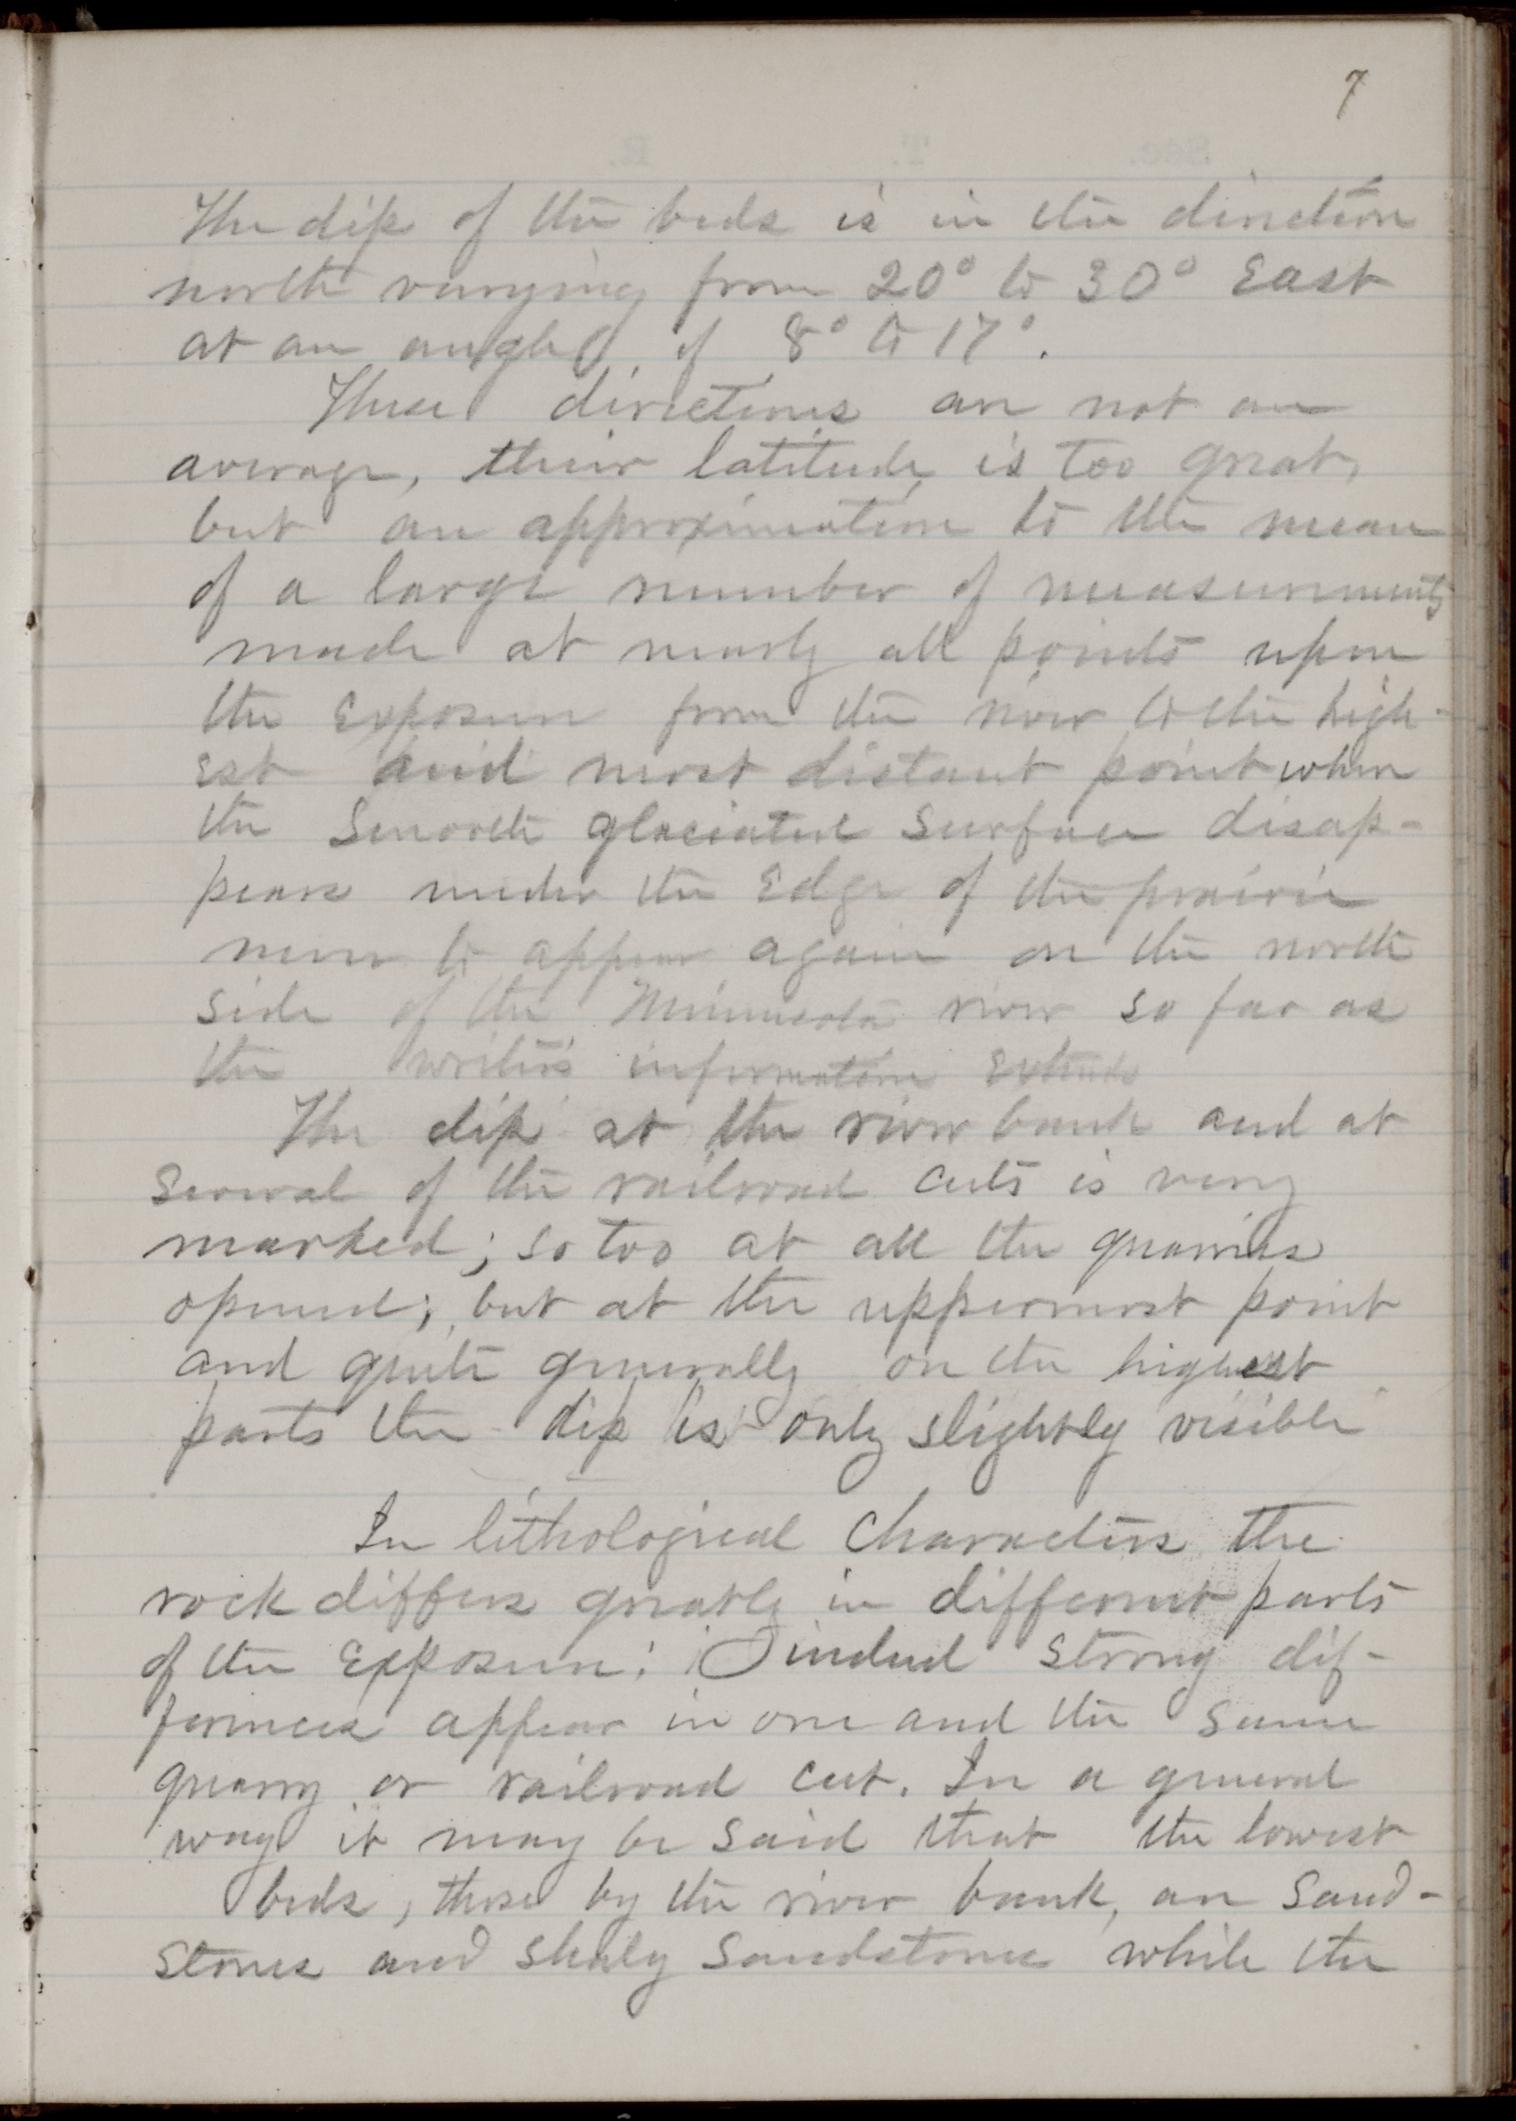 7
The dip of the beds is in the direction
north varying from 20° to 30° East
at an angle of 8° to 17°.
These directions are not an
average, their latitude is too great,
but an approximation to the mean
of a large number of measurements
made at nearly all points upon
the exposure from the river to the high-
est and most distant point where
the smooth glaciated surface disap-
pears under the edge of the prairie
never to appear again on the north
side of the Minnesota river so far as
the writer's information extends
The dip at the river bank and at
several of the railroad cuts is very
marked; so too at all the quarries
opened; but at the uppermost point
and quite generally on the highest
parts the dip is only slightly visible
In lithological characters the
rock differs greatly in different parts
of the exposure: indeed strong dif-
ferences appear in one and the same
quarry or railroad cut. In a general
way it may be said that the lowest
beds, those by the river bank, are sand-
stones and shaly sandstones while the